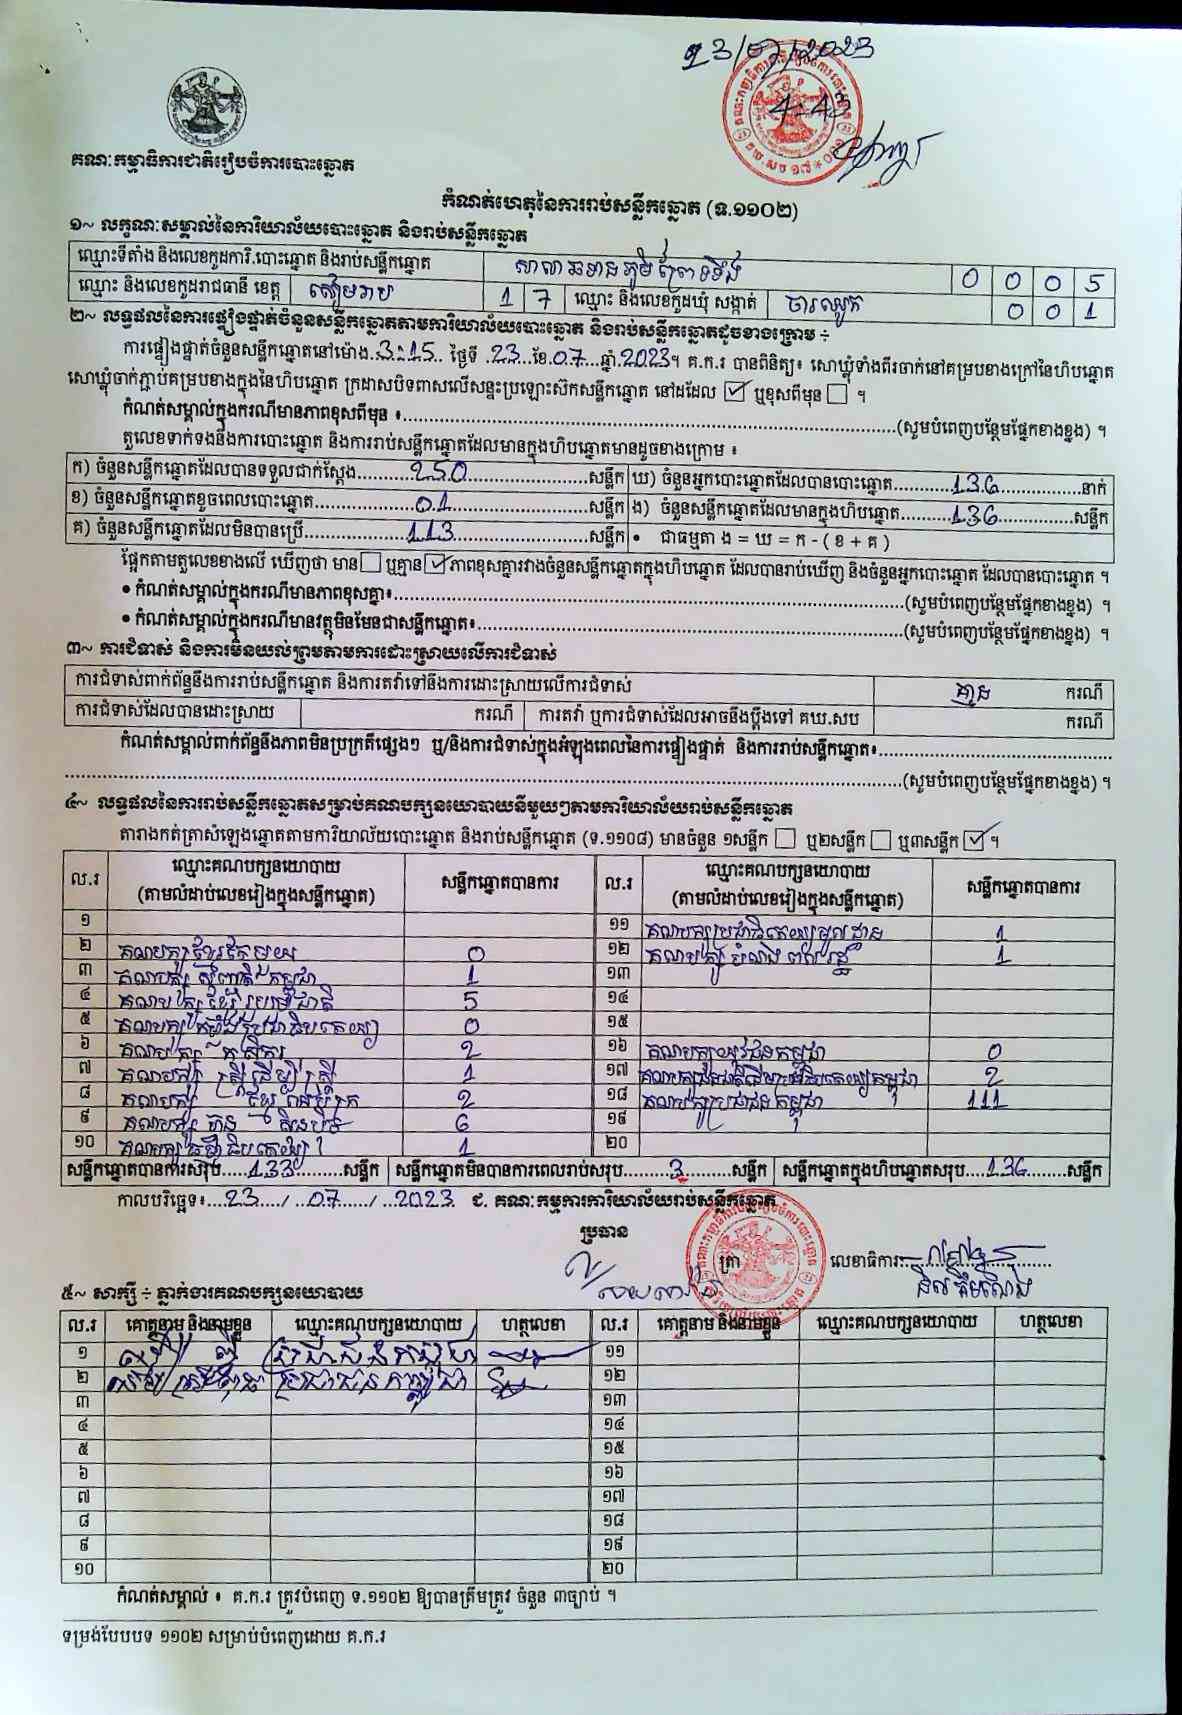 23/07/2023
4:45
គណៈកម្មាធិការជាតិរៀបចំការបោះឆ្នោត
កំណត់ហេតុនៃការរាប់សន្លឹកឆ្នោត (ទ.១១០២)
១~ លក្ខណៈសម្គាល់នៃការិយាល័យបោះឆ្នោត និងរាប់សន្លឹកឆ្នោត
ឈ្មោះទីតាំង និងលេខកូដការិ.បោះឆ្នោត និងរាប់សន្លឹកឆ្នោត សាលាឆទានភូមិ 0 0 0 5
ឈ្មោះ និងលេខកូដរាជធានី ខេត្ត សៀមរាប 1 7 ឈ្មោះ និងលេខកូដឃុំ សង្កាត់ ចារឈូក 0 0 1
២~ លទ្ធផលនៃការផ្ទៀងផ្ទាត់ចំនួនសន្លឹកឆ្នោតតាមការិយាល័យបោះឆ្នោត និងរាប់សន្លឹកឆ្នោតដូចខាងក្រោម ÷
ការផ្ទៀងផ្ទាត់ចំនួនសន្លឹកឆ្នោតនៅម៉ោង 3:15 ថ្ងៃទី 23 ខែ 07 ឆ្នាំ 2023។ គ.ក.រ បានពិនិត្យ៖ សោឃ្លុំទាំងពីរចាក់នៅគម្របខាងក្រៅនៃហិបឆ្នោត
សោឃ្លុំចាក់ភ្ជាប់គម្របខាងក្នុងនៃហិបឆ្នោត ក្រដាសបិទពាសលើសន្ទះប្រឡោះស៊កសន្លឹកឆ្នោត នៅដដែល ☑ ឬខុសពីមុន ☐ ។
កំណត់សម្គាល់ក្នុងករណីមានភាពខុសពីមុន ៖ (សូមបំពេញបន្ថែមផ្នែកខាងខ្នង) ។
តួលេខទាក់ទងនឹងការបោះឆ្នោត និងការរាប់សន្លឹកឆ្នោតដែលមានក្នុងហិបឆ្នោតមានដូចខាងក្រោម ៖
ក) ចំនួនសន្លឹកឆ្នោតដែលបានទទួលជាក់ស្តែង 250 សន្លឹក ឃ) ចំនួនអ្នកបោះឆ្នោតដែលបានបោះឆ្នោត 136 នាក់
ខ) ចំនួនសន្លឹកឆ្នោតខូចពេលបោះឆ្នោត 01 សន្លឹក ង) ចំនួនសន្លឹកឆ្នោតដែលមានក្នុងហិបឆ្នោត 136 សន្លឹក
គ) ចំនួនសន្លឹកឆ្នោតដែលមិនបានប្រើ 113 សន្លឹក • ជាធម្មតា ង = ឃ = ក - ( ខ + គ )
ផ្អែកតាមតួលេខខាងលើ ឃើញថា មាន ☐ ឬគ្មាន ☑ ភាពខុសគ្នារវាងចំនួនសន្លឹកឆ្នោតក្នុងហិបឆ្នោត ដែលបានរាប់ឃើញ និងចំនួនអ្នកបោះឆ្នោត ដែលបានបោះឆ្នោត ។
• កំណត់សម្គាល់ក្នុងករណីមានភាពខុសគ្នា៖ (សូមបំពេញបន្ថែមផ្នែកខាងខ្នង) ។
• កំណត់សម្គាល់ក្នុងករណីមានវត្ថុមិនមែនជាសន្លឹកឆ្នោត៖ (សូមបំពេញបន្ថែមផ្នែកខាងខ្នង) ។
៣~ ការជំទាស់ និងការមិនយល់ព្រមតាមការដោះស្រាយលើការជំទាស់
ការជំទាស់ពាក់ព័ន្ធនឹងការរាប់សន្លឹកឆ្នោត និងការតវ៉ាទៅនឹងការដោះស្រាយលើការជំទាស់ គ្មាន ករណី
ការជំទាស់ដែលបានដោះស្រាយ ករណី ការតវ៉ា ឬការជំទាស់ដែលអាចនឹងប្តឹងទៅ គឃ.សប ករណី
កំណត់សម្គាល់ពាក់ព័ន្ធនឹងភាពមិនប្រក្រតីផ្សេងៗ ឬ/និងការជំទាស់ក្នុងអំឡុងពេលនៃការផ្ទៀងផ្ទាត់ និងការរាប់សន្លឹកឆ្នោត៖
(សូមបំពេញបន្ថែមផ្នែកខាងខ្នង) ។
៤~ លទ្ធផលនៃការរាប់សន្លឹកឆ្នោតសម្រាប់គណបក្សនយោបាយនីមួយៗតាមការិយាល័យរាប់សន្លឹកឆ្នោត
តារាងកត់ត្រាសំឡេងឆ្នោតតាមការិយាល័យបោះឆ្នោត និងរាប់សន្លឹកឆ្នោត (ទ.១១០៨) មានចំនួន ១សន្លឹក ☐ ឬ២សន្លឹក ☐ ឬ៣សន្លឹក ☑ ។
ល.រ ឈ្មោះគណបក្សនយោបាយ (តាមលំដាប់លេខរៀងក្នុងសន្លឹកឆ្នោត) សន្លឹកឆ្នោតបានការ ល.រ ឈ្មោះគណបក្សនយោបាយ (តាមលំដាប់លេខរៀងក្នុងសន្លឹកឆ្នោត) សន្លឹកឆ្នោតបានការ
១ ១១ គណបក្សប្រជាធិបតេយ្យមូលដ្ឋាន 1
២ គណបក្សខ្មែរតែមួយ 0 ១២ គណបក្សបំណងពលរដ្ឋ 1
៣ គណបក្សសញ្ជាតិកម្ពុជា 1 ១៣
៤ គណបក្សខ្មែររួបរួមជាតិ 5 ១៤
៥ គណបក្សកម្លាំងប្រជាធិបតេយ្យ 0 ១៥
៦ គណបក្សកសិករ 2 ១៦ គណបក្សយុវជនកម្ពុជា 0
៧ គណបក្សស្ត្រីដើម្បីស្ត្រី 1 ១៧ 2
៨ គណបក្សខ្មែរអភិរក្ស 2 ១៨ គណបក្សប្រជាជនកម្ពុជា 111
៩ គណបក្សហ៊្វុនស៊ិនប៉ិច 6 ១៩
១០ គណបក្សធម្មាធិបតេយ្យ 1 ២០
សន្លឹកឆ្នោតបានការសរុប 133 សន្លឹក សន្លឹកឆ្នោតមិនបានការពេលរាប់សរុប 3 សន្លឹក សន្លឹកឆ្នោតក្នុងហិបឆ្នោតសរុប 136 សន្លឹក
កាលបរិច្ឆេទ៖ 23 / 07 / 2023 ជ. គណៈកម្មការការិយាល័យរាប់សន្លឹកឆ្នោត
ប្រធាន
ត្រា លេខាធិការ
៥~ សាក្សី ÷ ភ្នាក់ងារគណបក្សនយោបាយ
ល.រ គោត្តនាម និងនាមខ្លួន ឈ្មោះគណបក្សនយោបាយ ហត្ថលេខា ល.រ គោត្តនាម និងនាមខ្លួន ឈ្មោះគណបក្សនយោបាយ ហត្ថលេខា
១ ប្រជាជនកម្ពុជា ១១
២ ប្រជាជនកម្ពុជា ១២
៣ ១៣
៤ ១៤
៥ ១៥
៦ ១៦
៧ ១៧
៨ ១៨
៩ ១៩
១០ ២០
កំណត់សម្គាល់ ៖ គ.ក.រ ត្រូវបំពេញ ទ.១១០២ ឱ្យបានត្រឹមត្រូវ ចំនួន ៣ច្បាប់ ។
ទម្រង់បែបបទ ១១០២ សម្រាប់បំពេញដោយ គ.ក.រ